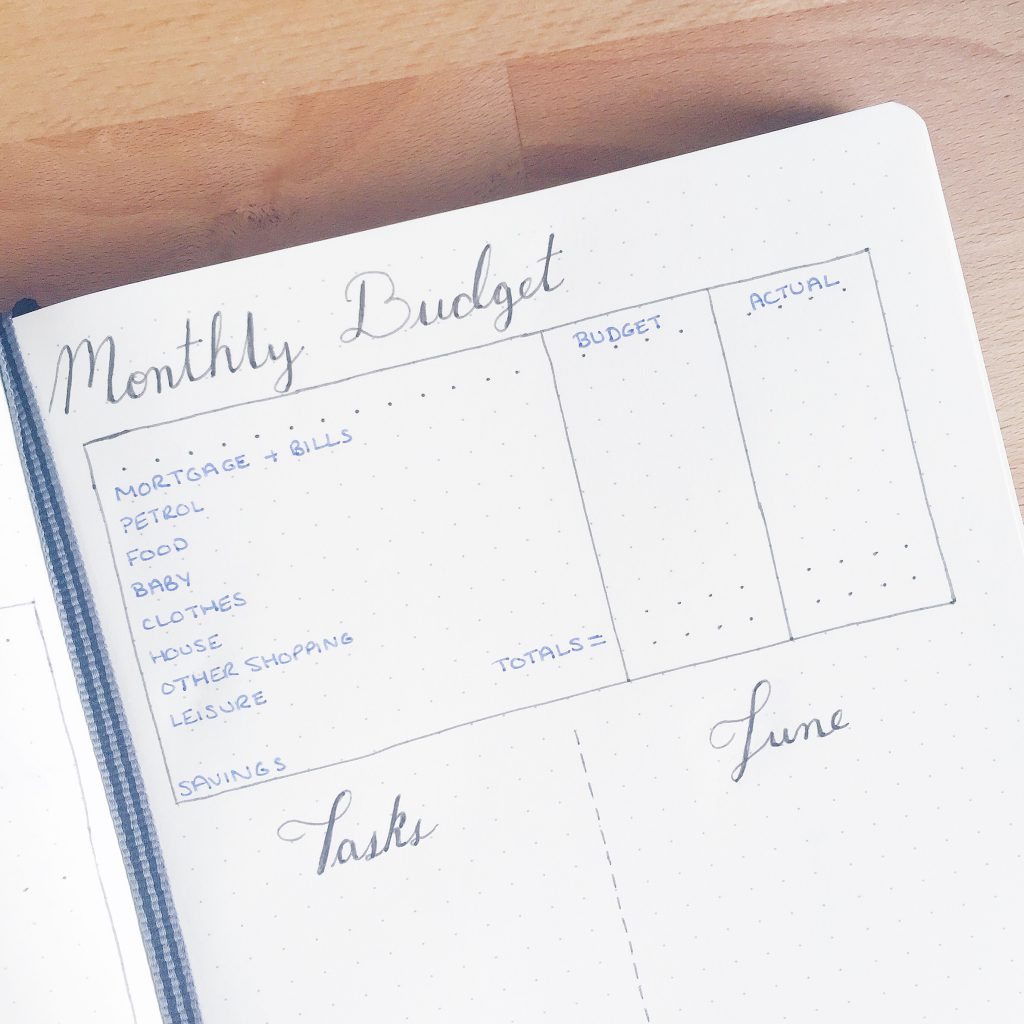 Monthly Budget
BUDGET ACTUAL
MORTGAGE + BILLS
PETROL
FOOD
BABY
CLOTHES
HOUSE
OTHER SHOPPING
LEISURE
TOTALS =
SAVINGS
Tasks
June